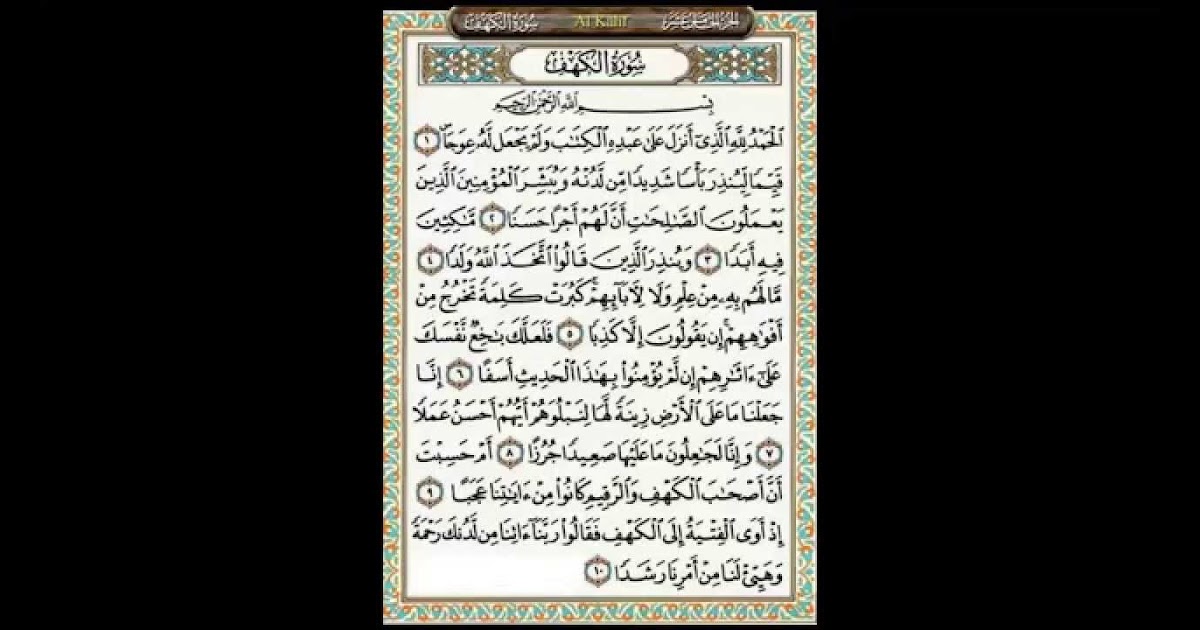 سُورَةُ الْكَهْفِ Al Kahf الجزء الخامس عشر
سُورَةُ الْكَهْفِ
بِسْمِ اللَّهِ الرَّحْمَٰنِ الرَّحِيمِ
الْحَمْدُ لِلَّهِ الَّذِي أَنزَلَ عَلَىٰ عَبْدِهِ الْكِتَٰبَ وَلَمْ يَجْعَل لَّهُ عِوَجَا ۜ ١
قَيِّمًا لِّيُنذِرَ بَأْسًا شَدِيدًا مِّن لَّدُنْهُ وَيُبَشِّرَ الْمُؤْمِنِينَ الَّذِينَ
يَعْمَلُونَ الصَّٰلِحَٰتِ أَنَّ لَهُمْ أَجْرًا حَسَنًا ٢ مَّٰكِثِينَ
فِيهِ أَبَدًا ٣ وَيُنذِرَ الَّذِينَ قَالُوا اتَّخَذَ اللَّهُ وَلَدًا ٤
مَّا لَهُم بِهِۦ مِنْ عِلْمٍ وَلَا لِءَابَآئِهِمْ ۚ كَبُرَتْ كَلِمَةً تَخْرُجُ مِنْ
أَفْوَٰهِهِمْ ۚ إِن يَقُولُونَ إِلَّا كَذِبًا ٥ فَلَعَلَّكَ بَٰخِعٌ نَّفْسَكَ
عَلَىٰٓ ءَاثَٰرِهِمْ إِن لَّمْ يُؤْمِنُوا بِهَٰذَا الْحَدِيثِ أَسَفًا ٦ إِنَّا
جَعَلْنَا مَا عَلَى الْأَرْضِ زِينَةً لَّهَا لِنَبْلُوَهُمْ أَيُّهُمْ أَحْسَنُ عَمَلًا
٧ وَإِنَّا لَجَٰعِلُونَ مَا عَلَيْهَا صَعِيدًا جُرُزًا ٨ أَمْ حَسِبْتَ
أَنَّ أَصْحَٰبَ الْكَهْفِ وَالرَّقِيمِ كَانُوا مِنْ ءَايَٰتِنَا عَجَبًا ٩
إِذْ أَوَى الْفِتْيَةُ إِلَى الْكَهْفِ فَقَالُوا رَبَّنَآ ءَاتِنَا مِن لَّدُنكَ رَحْمَةً
وَهَيِّئْ لَنَا مِنْ أَمْرِنَا رَشَدًا ١٠